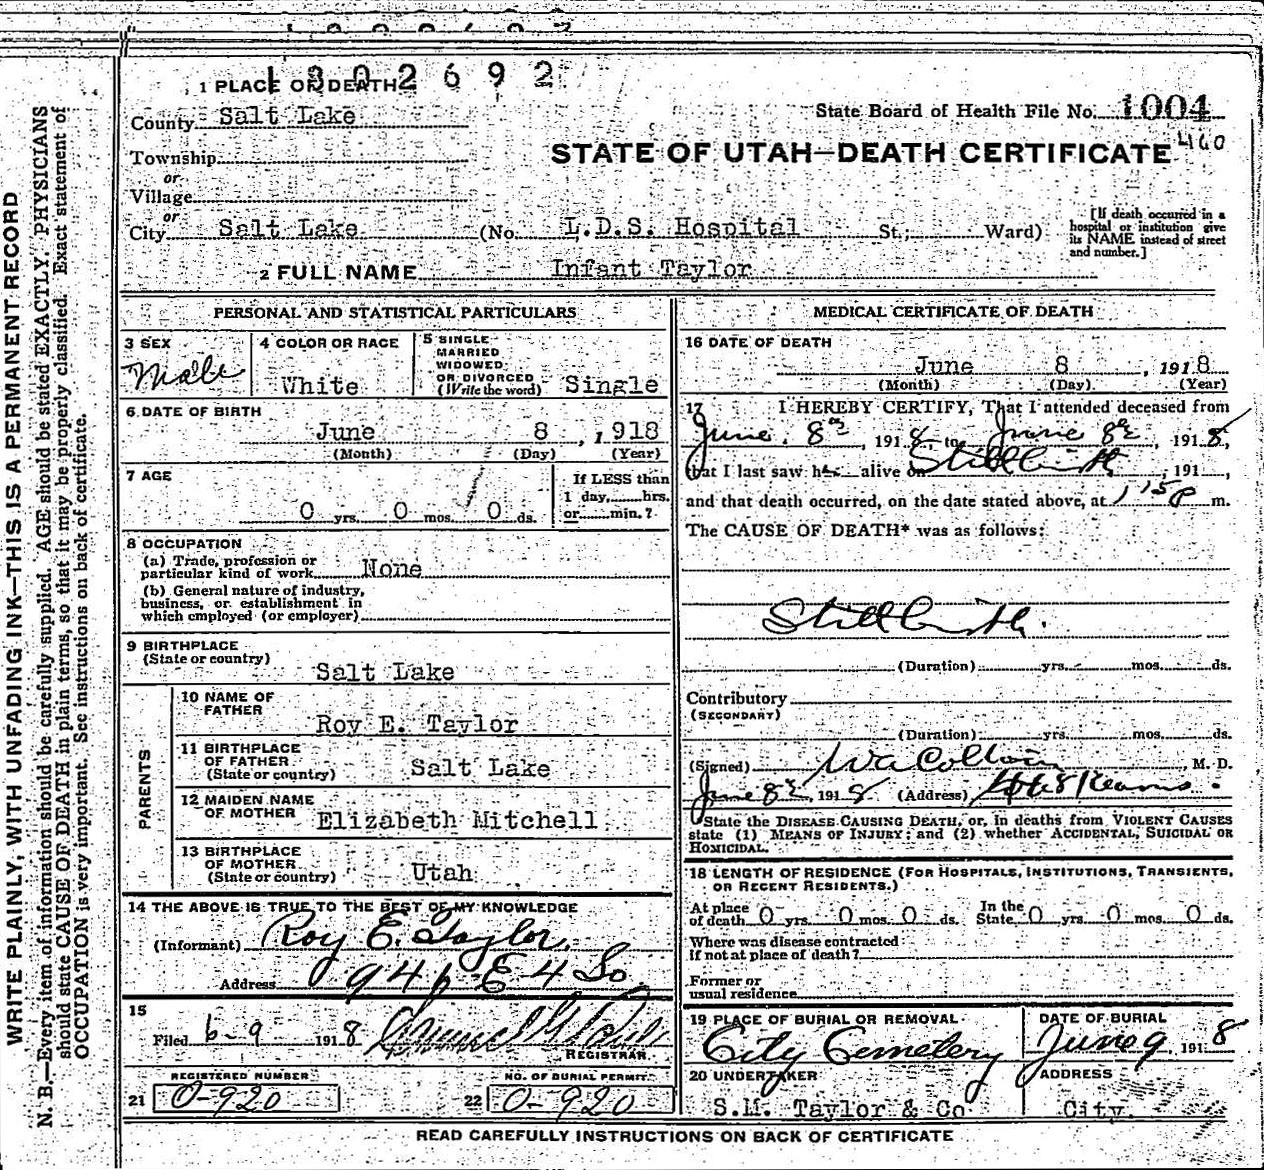 1802692
1 PLACE OF DEATH
County Salt Lake
State Board of Health File No. 1004
460
STATE OF UTAH—DEATH CERTIFICATE
Township
or
Village
or
City Salt Lake (No. L.D.S. Hospital St.; Ward)
[If death occurred in a
hospital or institution give
its NAME instead of street
and number.]
2 FULL NAME Infant Taylor
PERSONAL AND STATISTICAL PARTICULARS
3 SEX
Male
4 COLOR OR RACE
White
5 SINGLE
MARRIED
WIDOWED
OR DIVORCED
(Write the word) Single
6 DATE OF BIRTH
June 8, 1918
(Month) (Day) (Year)
7 AGE
0 yrs. 0 mos. 0 ds.
If LESS than
1 day, hrs.
or min.?
8 OCCUPATION
(a) Trade, profession or
particular kind of work None
(b) General nature of industry,
business, or establishment in
which employed (or employer)
9 BIRTHPLACE
(State or country)
Salt Lake
PARENTS
10 NAME OF
FATHER
Roy E. Taylor
11 BIRTHPLACE
OF FATHER
(State or country) Salt Lake
12 MAIDEN NAME
OF MOTHER
Elizabeth Mitchell
13 BIRTHPLACE
OF MOTHER
(State or country) Utah
14 THE ABOVE IS TRUE TO THE BEST OF MY KNOWLEDGE
(Informant) Roy E. Taylor
Address E 4 So
15
Filed 6-9 1918
REGISTRAR
REGISTERED NUMBER
21 O-920
NO. OF BURIAL PERMIT
22 O-920
MEDICAL CERTIFICATE OF DEATH
16 DATE OF DEATH
June 8, 1918
(Month) (Day) (Year)
17 I HEREBY CERTIFY, That I attended deceased from
June 8, 1918 to June 8, 1918,
that I last saw h alive on Stillbirth, 191 ,
and that death occurred, on the date stated above, at 1 15 P m.
The CAUSE OF DEATH* was as follows:
Stillbirth.
(Duration) yrs. mos. ds.
Contributory
(SECONDARY)
(Duration) yrs. mos. ds.
(Signed) M. D.
June 8, 1918 (Address) Hotel Kearns.
*State the DISEASE CAUSING DEATH, or, in deaths from VIOLENT CAUSES
state (1) MEANS OF INJURY; and (2) whether ACCIDENTAL, SUICIDAL OR
HOMICIDAL.
18 LENGTH OF RESIDENCE (FOR HOSPITALS, INSTITUTIONS, TRANSIENTS,
OR RECENT RESIDENTS.)
At place
of death 0 yrs. 0 mos. 0 ds. In the
State 0 yrs. 0 mos. 0 ds.
Where was disease contracted
if not at place of death?
Former or
usual residence
19 PLACE OF BURIAL OR REMOVAL
City Cemetery
DATE OF BURIAL
June 9 1918
20 UNDERTAKER
S.M. Taylor & Co
ADDRESS
City.
READ CAREFULLY INSTRUCTIONS ON BACK OF CERTIFICATE
WRITE PLAINLY, WITH UNFADING INK—THIS IS A PERMANENT RECORD
N. B.—Every item of information should be carefully supplied. AGE should be stated EXACTLY. PHYSICIANS
should state CAUSE OF DEATH in plain terms, so that it may be properly classified. Exact statement of
OCCUPATION is very important. See instructions on back of certificate.